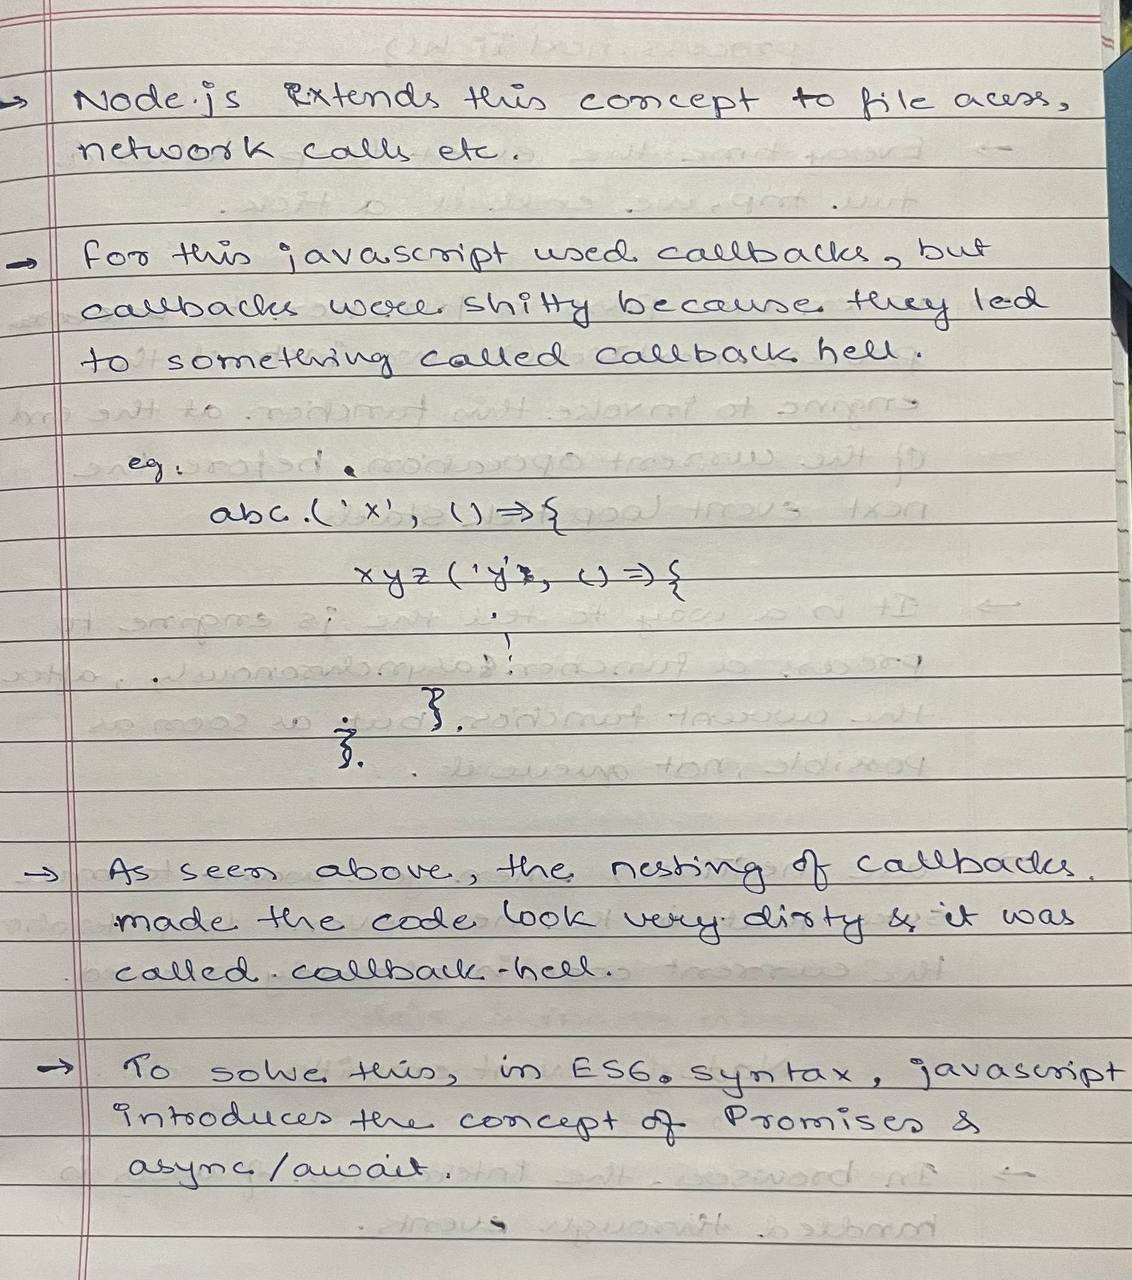 → Node.js Extends this concept to file acess,
network calls etc.
→ for this javascript used callbacks, but
callbacks were shitty because they led
to something called callback hell.
eg.
abc.('x', () => {
xyz ('y', () => {
}.
}.
→ As seen above, the nesting of callbacks.
made the code look very dirty & it was
called callback-hell.
→ To solve this, in ES6. syntax, javascript
introduces the concept of Promises &
async/await.